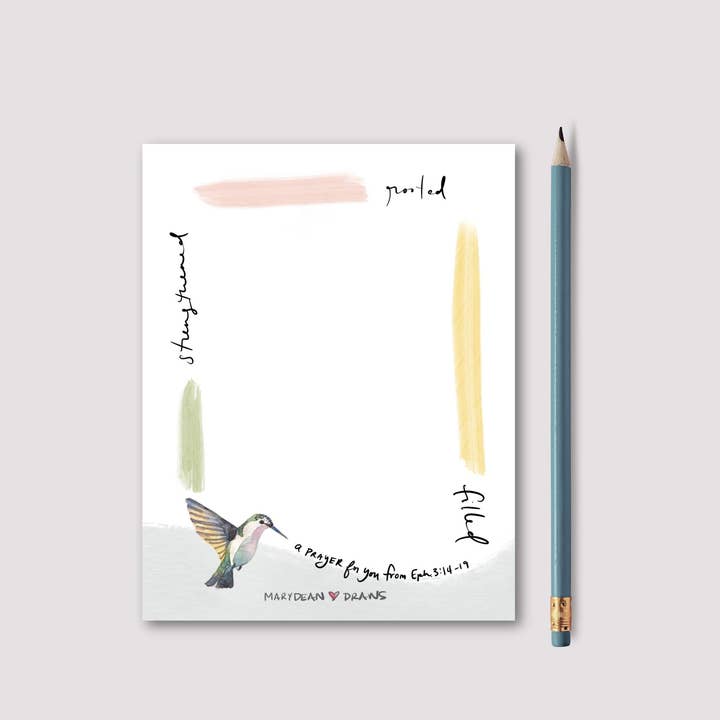 rooted
strengthened
filled
a PRAYER for you from Eph. 3:14-19
MARYDEAN DRAWS